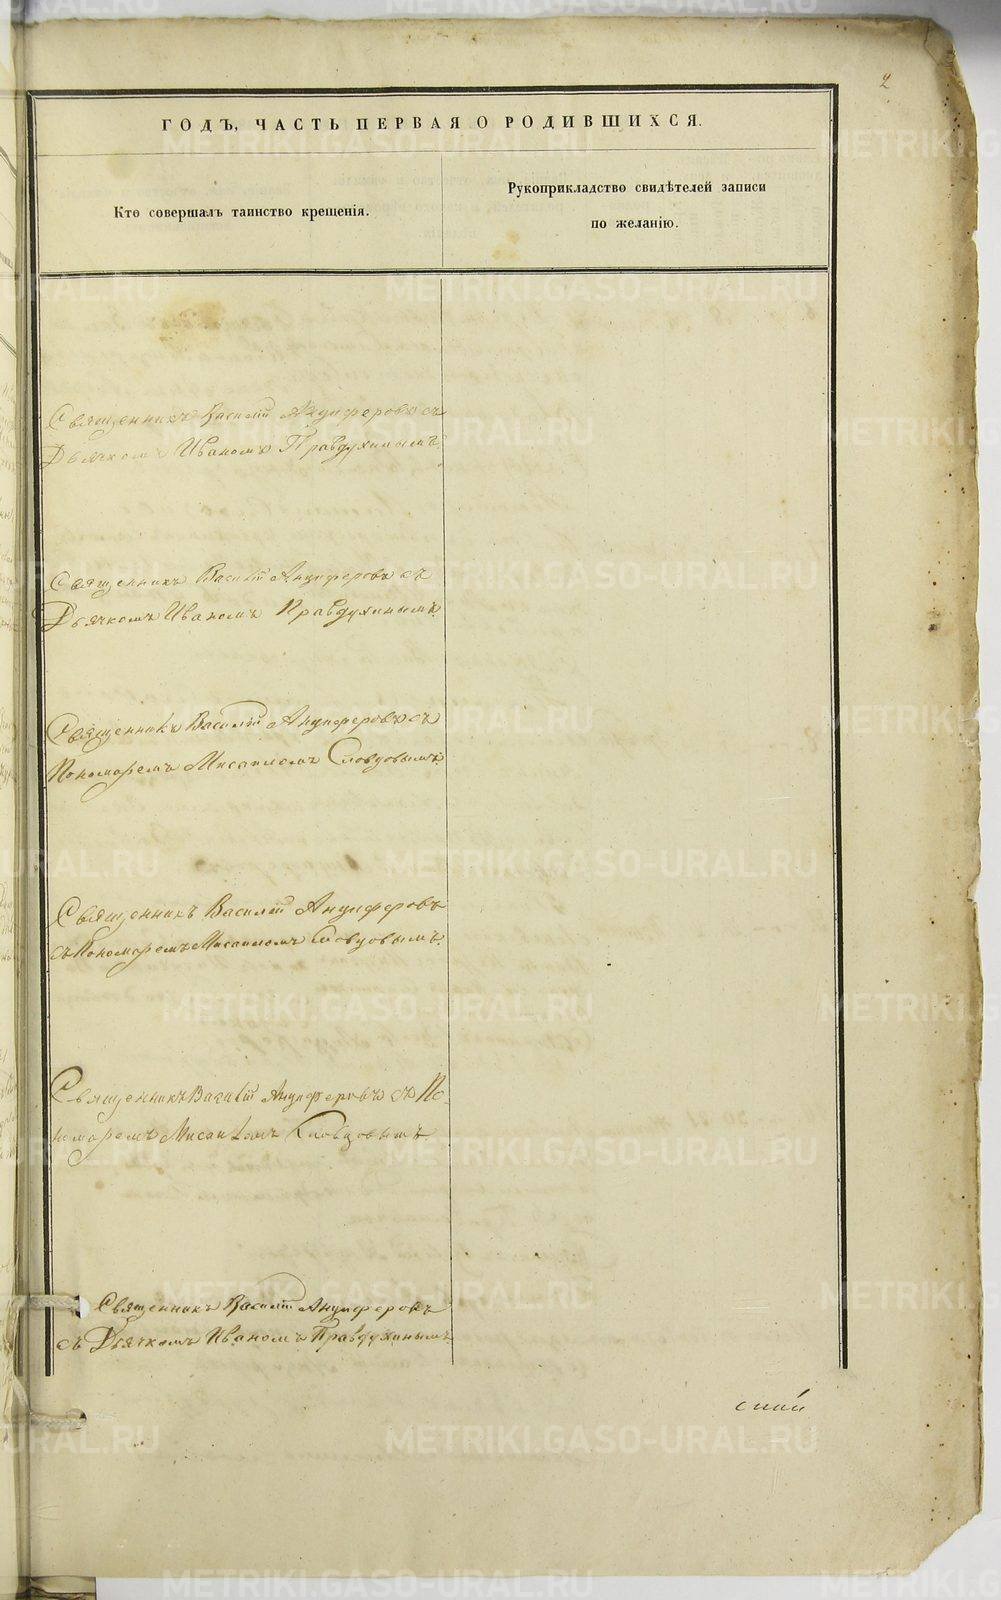 2
ГОДЪ, ЧАСТЬ ПЕРВАЯ О РОДИВШИХСЯ.
Кто совершалъ таинство крещенія.
Рукоприкладство свидѣтелей записи
по желанію.
Священникъ Василій Анциферовъ съ
Дьячкомъ Иваномъ Правдухинымъ.
Священникъ Василій Анциферовъ съ
Дьячкомъ Иваномъ Правдухинымъ.
Священникъ Василій Анциферовъ съ
Пономаремъ Мисаиломъ Словцовымъ.
Священникъ Василій Анциферовъ
съ Пономаремъ Мисаиломъ Словцовымъ.
Священникъ Василій Анциферовъ съ По-
номаремъ Мисаиломъ Словцовымъ
Священникъ Василій Анциферовъ
съ Дьячкомъ Иваномъ Правдухинымъ
METRIKI.GASO-URAL.RU